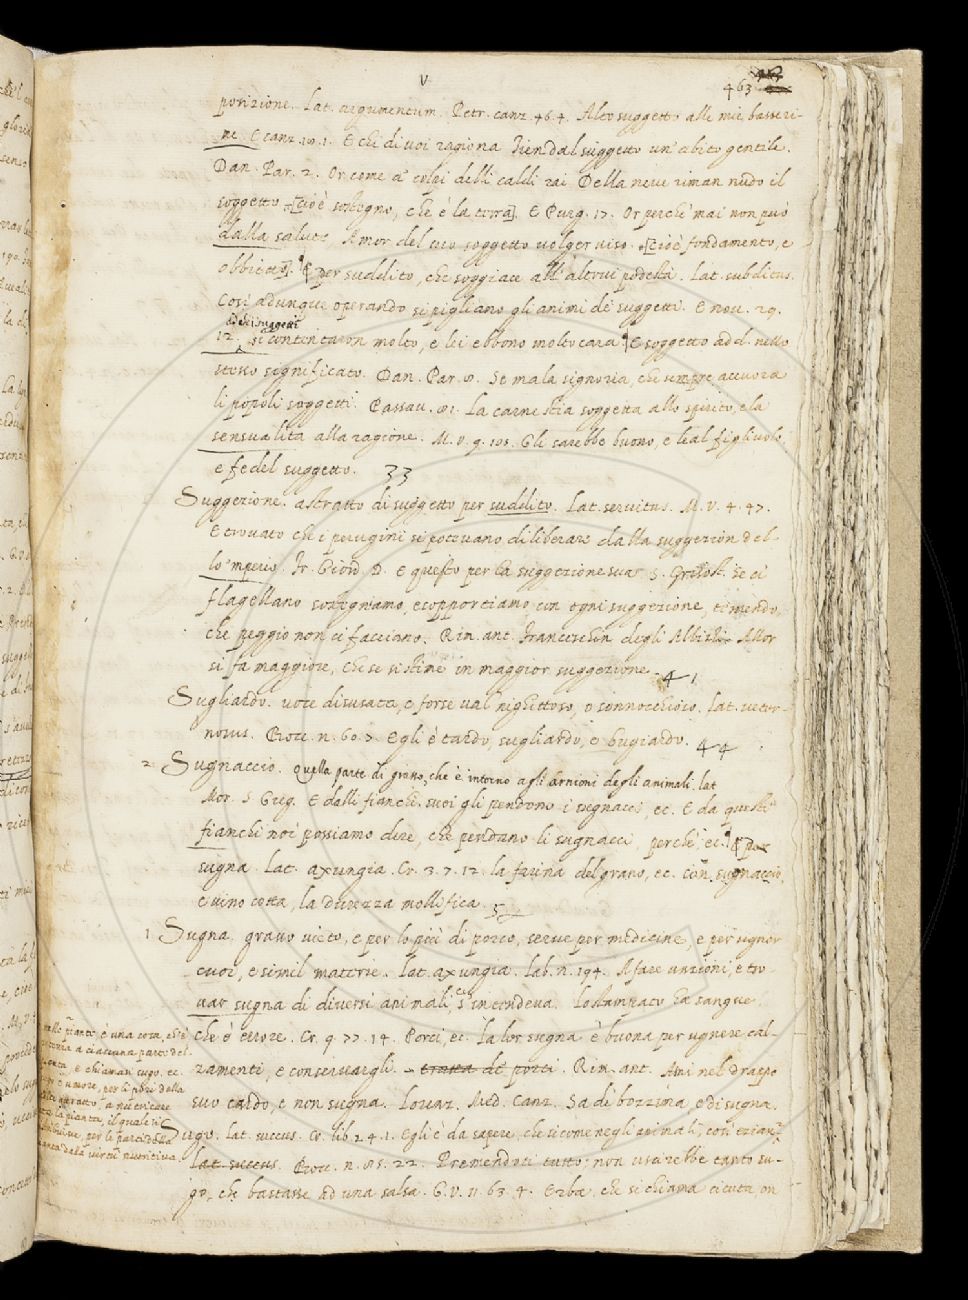 V
463
posizione. Lat. argumentum. Petr. canz. 46. 4. Alto suggetto alle mie basse ri-
me. E canz. 18. 1. E chi di voi ragiona Tien dal suggetto un abito gentile.
Dan. Par. 2. Or come a' colpi delli caldi rai Della neve riman nudo il
soggetto [cioè sostegno, che è la terra]. E Purg. 17. Or perchè mai non può
dalla salute, Amor del suo soggetto volger viso. [cioè fondamento, e
obbietto]. E per suddito, che soggiace all'altrui podestà. Lat. subditus.
Così adunque operando si pigliano gli animi de' suggetti. E nov. 29.
ed i suggetti
12. si contentaron molto, e lei ebbono molto cara. E soggetto add. nello
stesso significato. Dan. Par. 8. Se mala signoria, che sempre accuora
li popoli soggetti. Passav. 81. La carne stia soggetta allo spirito, e la
sensualità alla ragione. M. V. 9. 105. Gli sarebbe buono, e leal figliuolo,
e fedel suggetto. 33
Suggezione. astratto di suggetto per suddito. Lat. servitus. M. V. 4. 47.
E trovato che i perugini si potevano diliberare dalla suggezion del-
lo 'mperio. Fr. Giord. D. E questo per la suggezione sua. S. Grisost. Se ci
flagellano sostegniamo, e copportiamo con ogni suggezione, temendo,
che peggio non ci facciano. Rim. ant. Franceschin degli Albizzi. Allor
si fa maggiore, Che se si stine in maggior suggezione. 41
Sugliardo. voce disusata, e forse val nighittoso, o sonnocchioso. Lat. veter-
nosus. Bocc. n. 60. 7. Egli è tardo, sugliardo, e bugiardo. 44
2 Sugnaccio. Quella parte di grasso, che è intorno agli arnioni degli animali. lat
Mor. S. Greg. E dalli fianchi suoi gli pendono i sugnacci, ec. E da questi
fianchi noi possiamo dire, che pendano li sugnacci, perchè, ec. E per
sugna. Lat. axungia. Cr. 3. 7. 12. la farina del grano, ec. con sugnaccio,
e vino cotta, la durezza mollifica. 5
1 Sugna. grasso vieto, e per lo più di porco, serve per medicine, e per ugner
cuoi, e simil materie. Lat. axungia. Lab. n. 194. A fare unzioni, e tro-
var sugna di diversi animali s'intendeva. Volgamento ha sangue,
che è errore. Cr. 9. 77. 14. Porci, ec. la lor sugna è buona per ugnere cal-
zamenti, e conservargli. de' porci. Rim. ant. Ami nel drappo
suo cardo, e non sugna. Lovar. Med. Canz. Sa di bozzima, e di sugna.
Sugo. Lat. succus. Cr. lib. 2. 4. 1. Egli è da sapere, che sicome negli animali, così ezian-
Lat. succus. Bocc. n. 85. 22. Premendoti tutto, non uscirebbe tanto su-
go, che bastasse ad una salsa. G. V. 11. 63. 4. Erba, che si chiama cicuta on
nelle piante è una cosa, ch'è
a ciascuna parte del
e chiaman sugo, ec.
umore, per li pori della
a nutricare
la pianta, il quale si
per le parti della
pianta dalla virtù nutritiva.